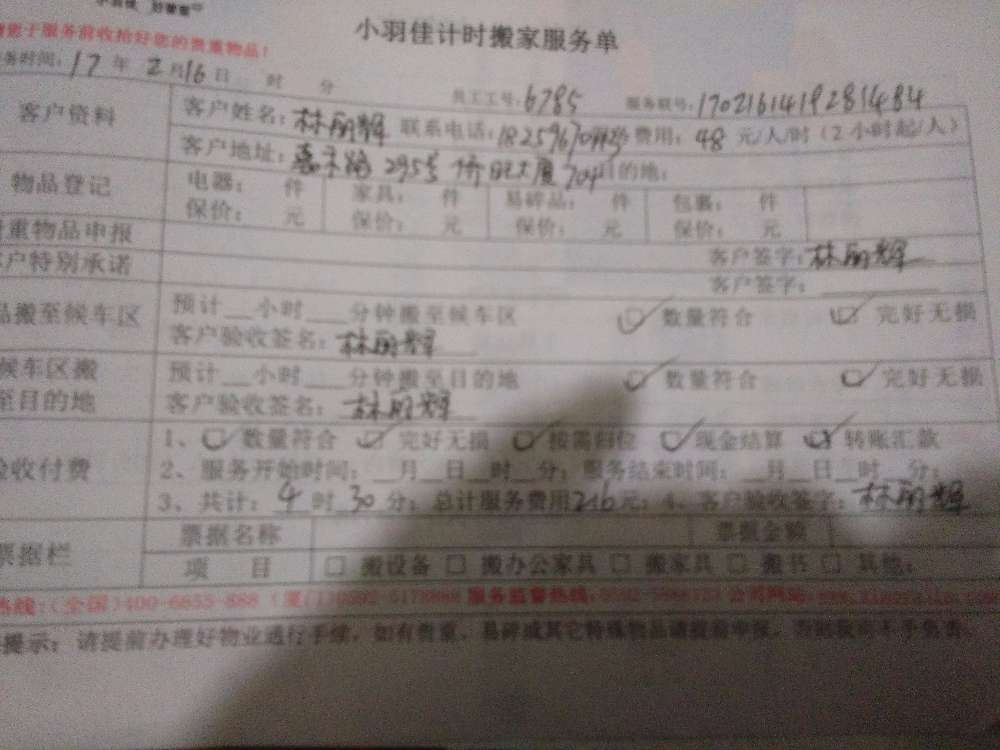 小羽佳计时搬家服务单
请您于服务前收拾好您的贵重物品！
务时间：17年2月16日 时 分
员工工号：6785 服务联号：1702161419281484
客户资料 客户姓名：林丽辉 联系电话： 费用：48元/人/时（2小时起/人）
客户地址：嘉禾路295号 大厦704 目的地：
物品登记 电器： 件 家具： 件 易碎品： 件 包裹： 件
保价： 元 保价： 元 保价： 元 保价： 元
重物品申报 客户签字：林丽辉
户特别承诺 客户签字：
品搬至候车区 预计__小时___分钟搬至候车区 数量符合 完好无损
客户验收签名：林丽辉
候车区搬 预计__小时___分钟搬至目的地 数量符合 完好无损
至目的地 客户验收签名：林丽辉
1、 数量符合 完好无损 按需归位 现金结算 转账汇款
验收付费 2、服务开始时间：__月__日__时__分；服务结束时间：__月__日__时__分；
3、共计：4时30分；总计服务费用216元；4、客户验收签字：林丽辉
票据栏 票据名称 票据金额
项 目 □ 搬设备 □ 搬办公家具 □ 搬家具 □ 搬书 □ 其他：
热线：（全国）400-6655-888 服务监督热线： 公司网站：
提示：请提前办理好物业通行手续，如有贵重、易碎或其它特殊物品请提前申报，否则我司不予负责。